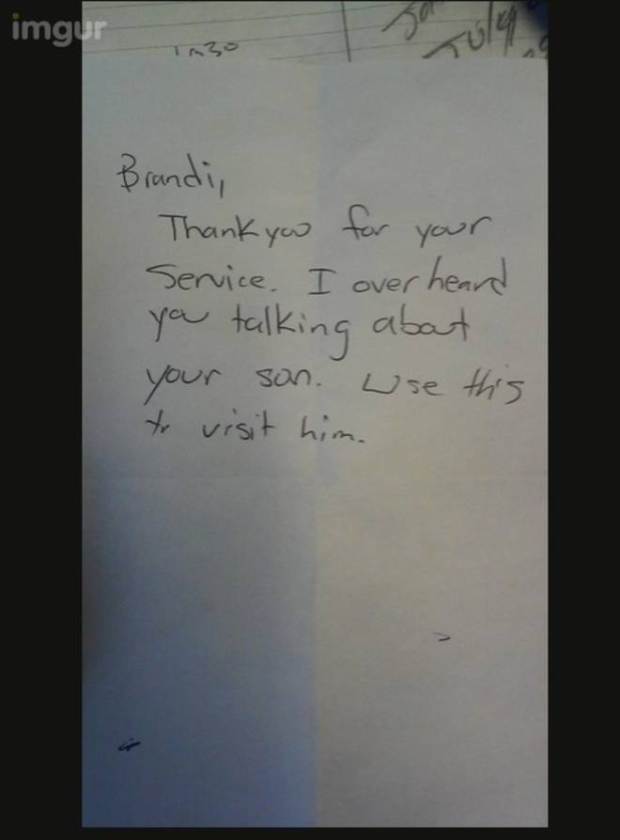 imgur
Brandi,
Thank you for your
Service. I overheard
you talking about
your son. Use this
to visit him.